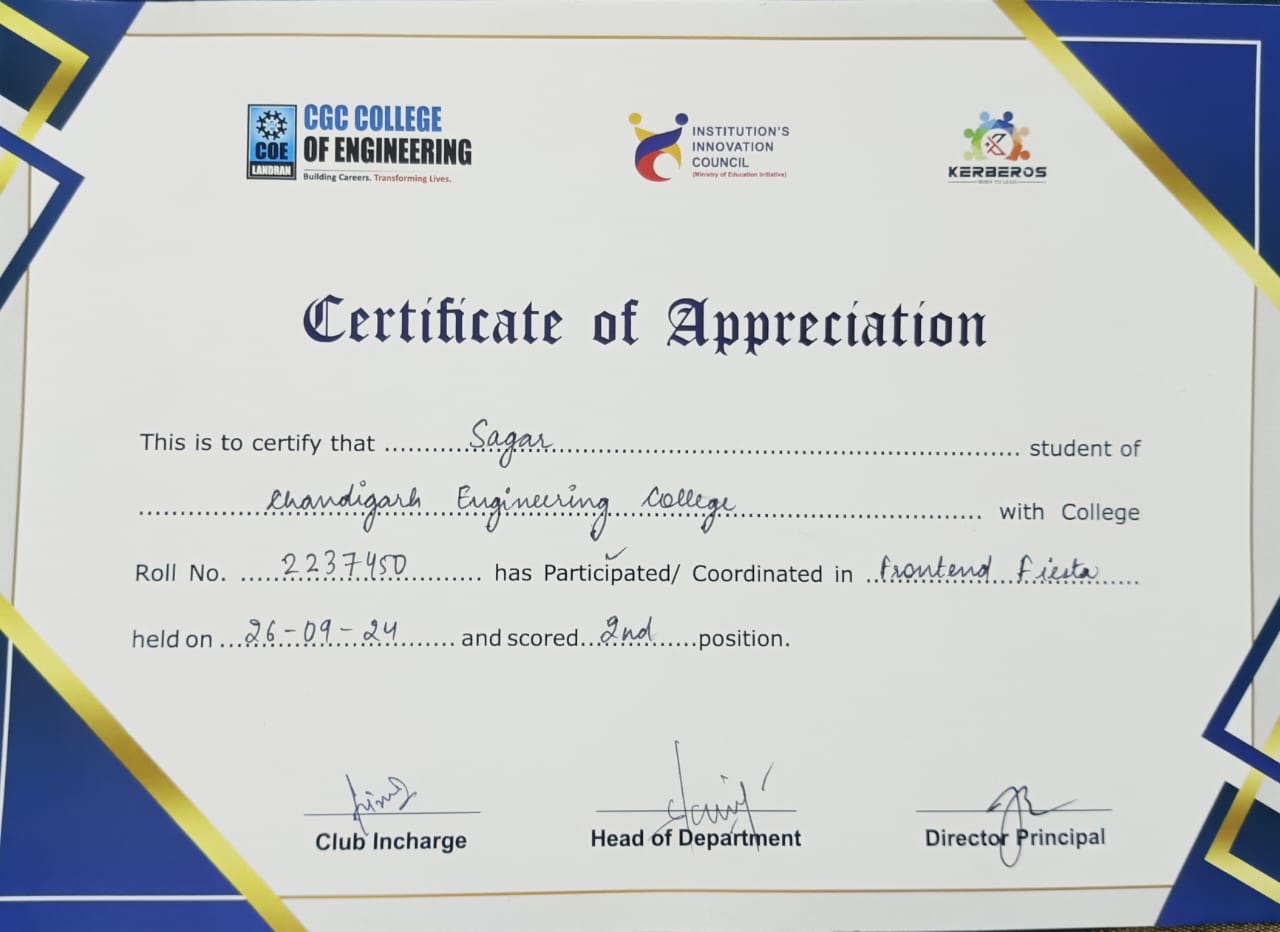 CGC COLLEGE
OF ENGINEERING
COE
LANDRAN
Building Careers. Transforming Lives.
INSTITUTION'S
INNOVATION
COUNCIL
(Ministry of Education Initiative)
KERBEROS
Certificate of Appreciation
This is to certify that ..........Sagar.......... student of
..........Chandigarh Engineering College.......... with College
Roll No. .....2237450.......... has Participated/ Coordinated in ..Frontend Fiesta.....
held on ...26-09-24........ and scored...2nd.....position.
Club Incharge
Head of Department
Director Principal